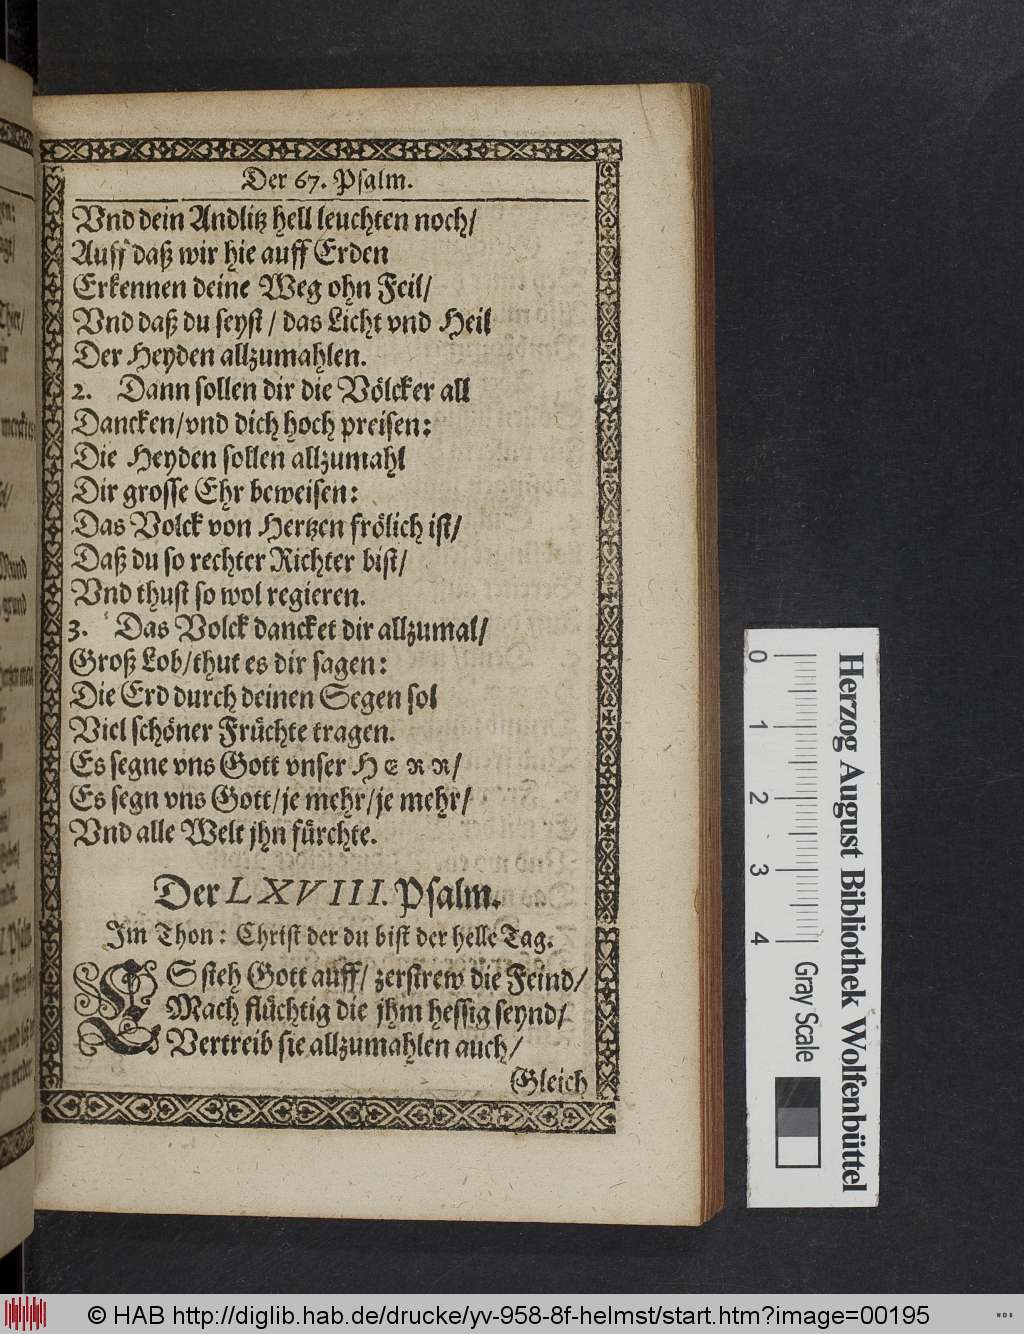 Der 67. Psalm.
Vnd dein Andlitz hell leuchten noch/
Auff daß wir hie auff Erden
Erkennen deine Weg ohn Feil/
Vnd daß du seyst / das Licht vnd Heil
Der Heyden allzumahlen.
2. Dann sollen dir die Völcker all
Dancken/vnd dich hoch preisen:
Die Heyden sollen allzumahl
Dir grosse Ehr beweisen:
Das Volck von Hertzen frölich ist/
Daß du so rechter Richter bist/
Vnd thust so wol regieren.
3. Das Volck dancket dir allzumal/
Groß Lob/thut es dir sagen:
Die Erd durch deinen Segen sol
Viel schöner Früchte tragen.
Es segne vns Gott vnser HERR/
Es segn vns Gott/je mehr/je mehr/
Vnd alle Welt jhn fürchte.
Der LXVIII. Psalm.
Im Thon: Christ der du bist der helle Tag.
ES steh Gott auff/ zerstrew die Feind/
Mach flüchtig die jhm hessig seynd/
Vertreib sie allzumahlen auch/
Gleich
0 1 2 3 4 Gray Scale
Herzog August Bibliothek Wolfenbüttel
© HAB http://diglib.hab.de/drucke/yv-958-8f-helmst/start.htm?image=00195